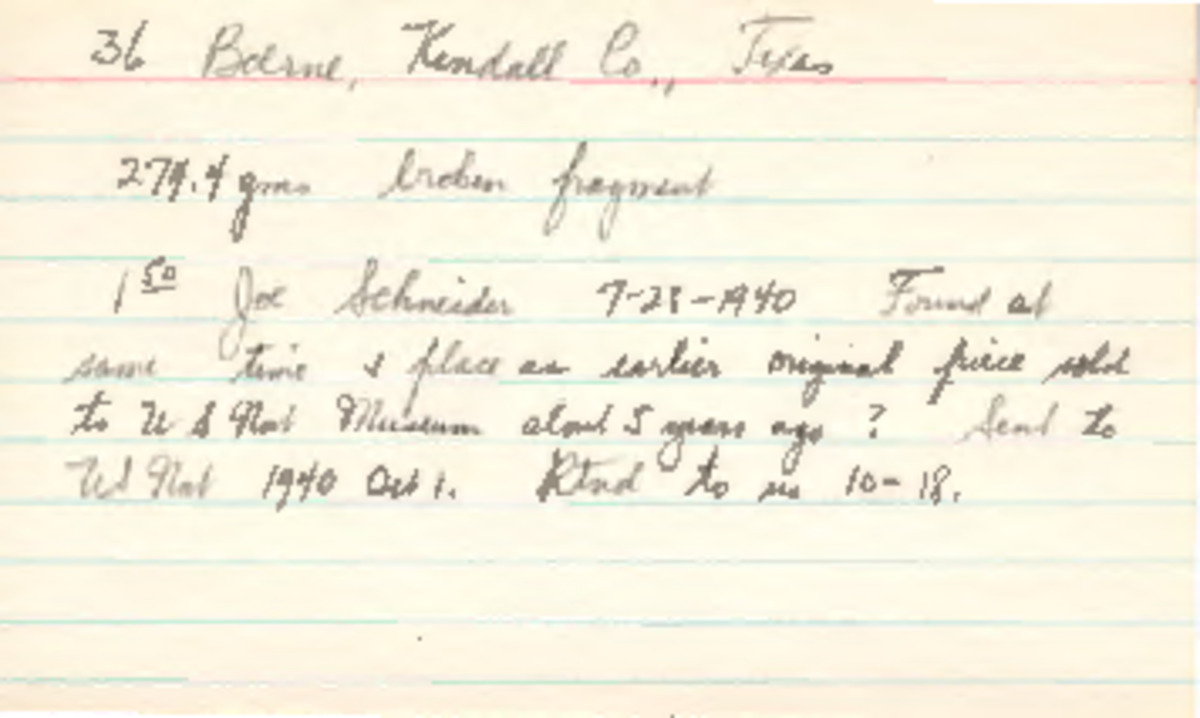 36 Boerne, Kendall Co., Texas
274.4 gms broken fragment
1 50 Joe Schneider 7-28-1940 Found at
same time & place as earlier original piece sold
to U S Nat Museum about 5 years ago ? Sent to
US Nat 1940 Oct 1. Rtnd to us 10-18.